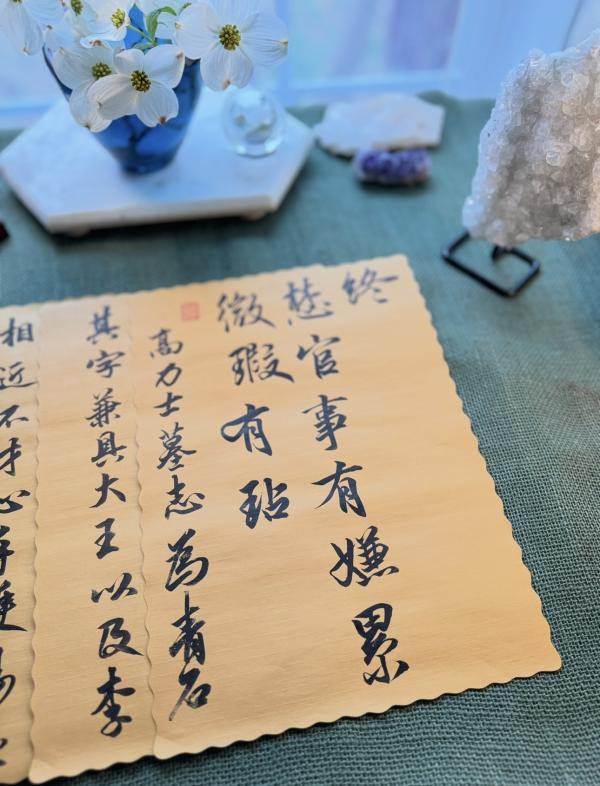 終
官事有嫌累
微瑕有玷
高力士墓志為青石
其字兼具大王以及李
相近不才心